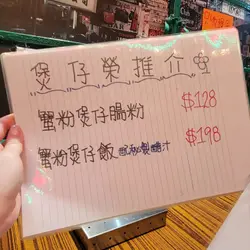 煲仔榮推介
蟹粉煲仔腸粉 $128
蟹粉煲仔飯 配秘製醬汁 $198